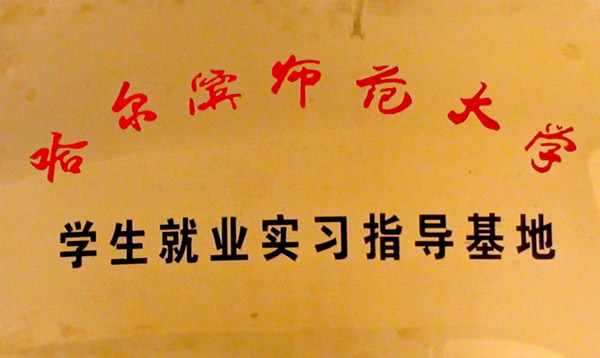 哈尔滨师范大学
学生就业实习指导基地